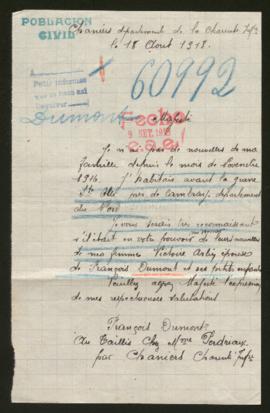 POBLACION
CIVIL
Chaniers département de la Charente Infre
le 18 Août 1918.
60992
Dumont
Majesté
Fecha
9 SET. 1918
Je n'ai pas de nouvelles de ma
famille depuis le mois de
1916. J'habitais avant la guerre
près de Cambrai, département
du Nord
Je vous serais très reconnaissant
s'il était en votre pouvoir de
de ma femme Victoire épouse
de François Dumont et ses petits enfants
Veuillez agréer Majesté l'expression
de mes respectueuses salutations
François Dumont
Au Taillis Chez Mme Perdriaux
par Chaniers Charente Infre